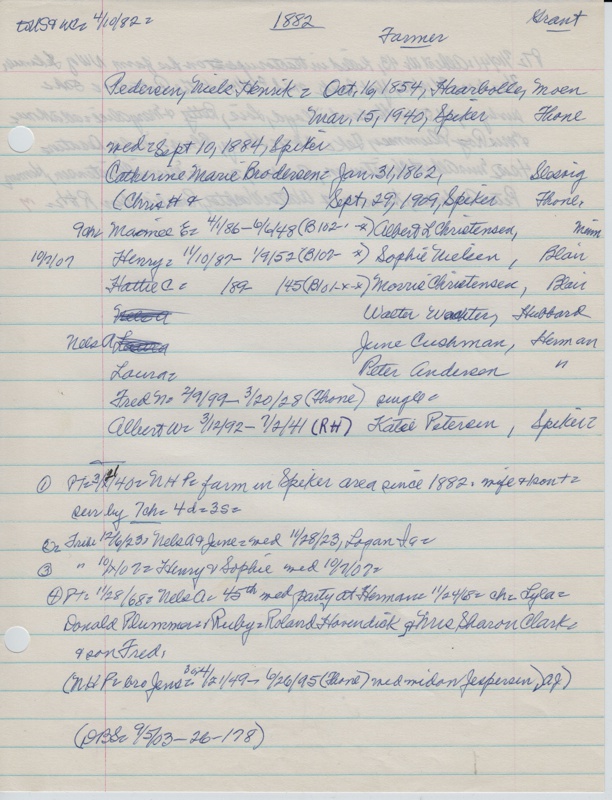 to US & WC= 4/10/82= 1882 Grant
Farmer
Pedersen, Niels Henrik = Oct, 16, 1854, Haarbolle, Moen
Mar, 15, 1940, Spiker Fhone
med = Sept 10, 1884, Spiker
Catherine Marie Brodersen = Jan, 31, 1862, Slesvig
(Chris H & ) Sept, 29, 1909, Spiker Fhone,
9ch= E = 4/1/86 - 6/6/48 (B102- -x) Albert L Christensen,
10/7/07 Henry = 11/10/87 - 1/9/52 (B102- -x) Sophie Nielsen, Blair
Hattie C = 189- 145 (B101-x-x) Morris Christensen, Blair
Nels A Walter Wachter, Hubbard
Nels A Laura June Cushman, Herman
Laura = Peter Andersen "
Fred N= 2/9/99 - 3/20/28 (Fhone) single =
Albert W= 3/12/92 - 7/2/41 (RH) Katie Petersen, Spiker =
① Pt = 40 = N H P= farm in Spiker area since 1882. wife & son + =
sur by 7ch = 4d = 3s =
② = 12/6/23, Nels A & June = med 11/28/23, Logan Ia =
③ " 10/ /07 = Henry & Sophie med 10/7/07 =
④ Pt = 11/28/68 = Nels A = 45th wed party at Herman = 11/24/8 = ch = Lyla =
Donald Plummer =, Ruby = Roland Hovendick & Mrs Sharon Clark =
& son Fred,
(N H P= bro Jens = 4/21/49 - 6/26/95 (Fhone) med Jespersen,
(DBS= 9/5/03 - 26 - 178)